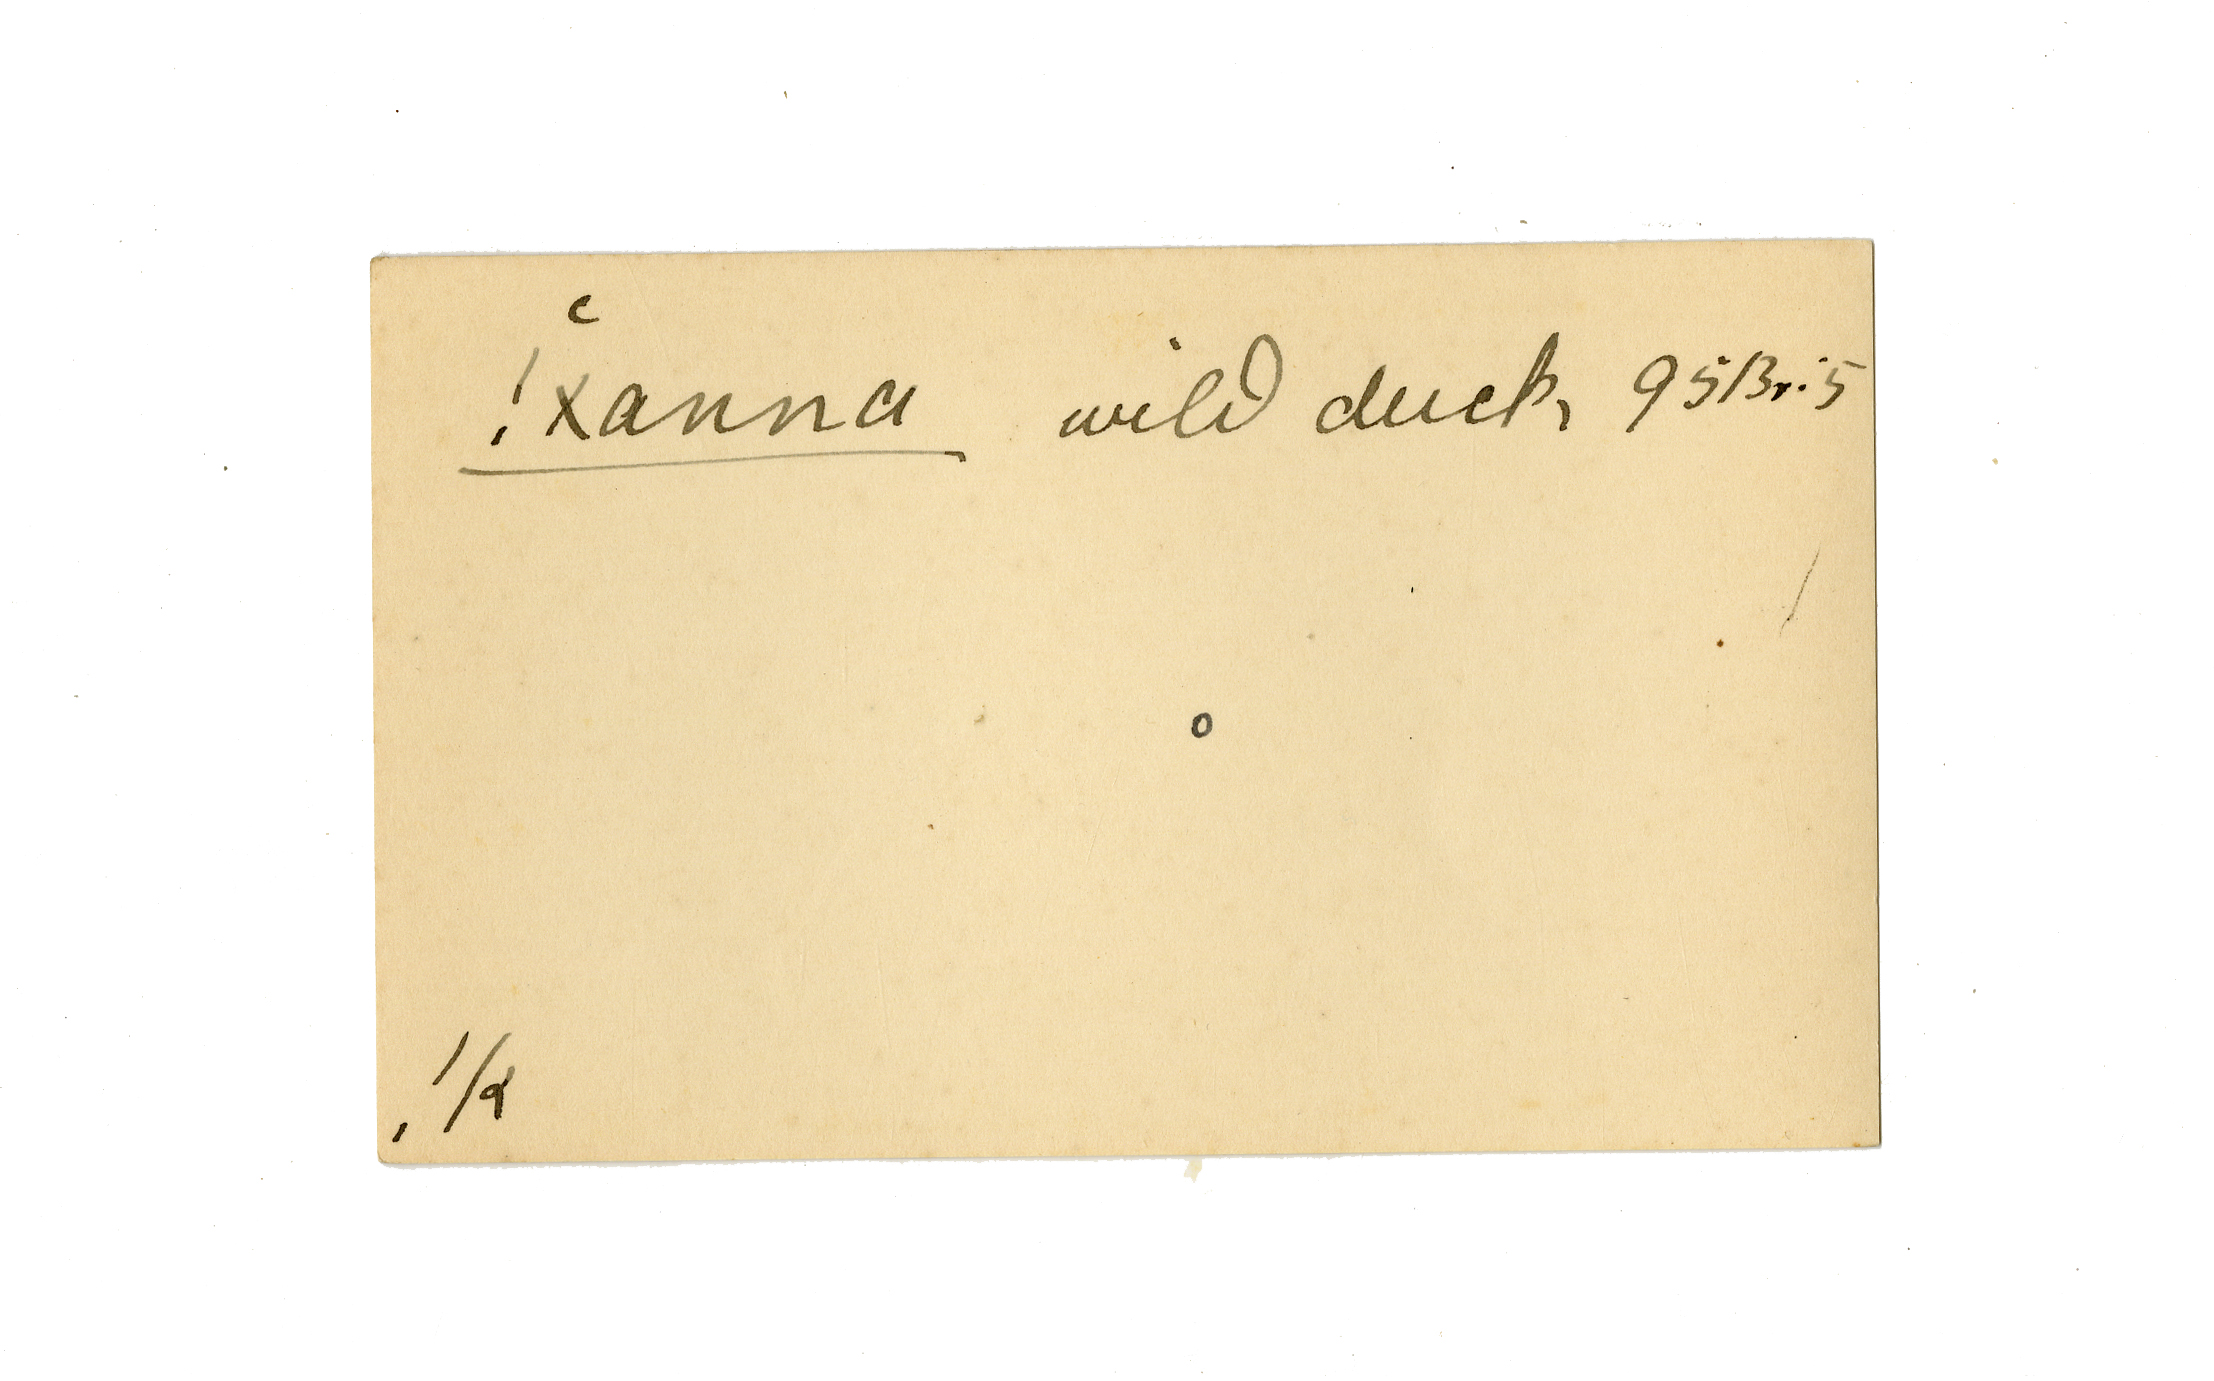 !x̆anna wild duck, 95Br.5
o
!k